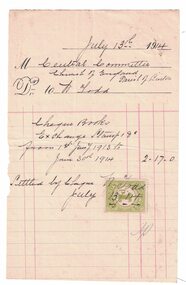 July 13th 1914
M Central Committee
Church of England
Parish of
Dr. to W Todd
Cheque Books
Exchange Stamps
from 1st Jany 1913 to
June 30th 1914 2-17.0
Settled by Cheque
July